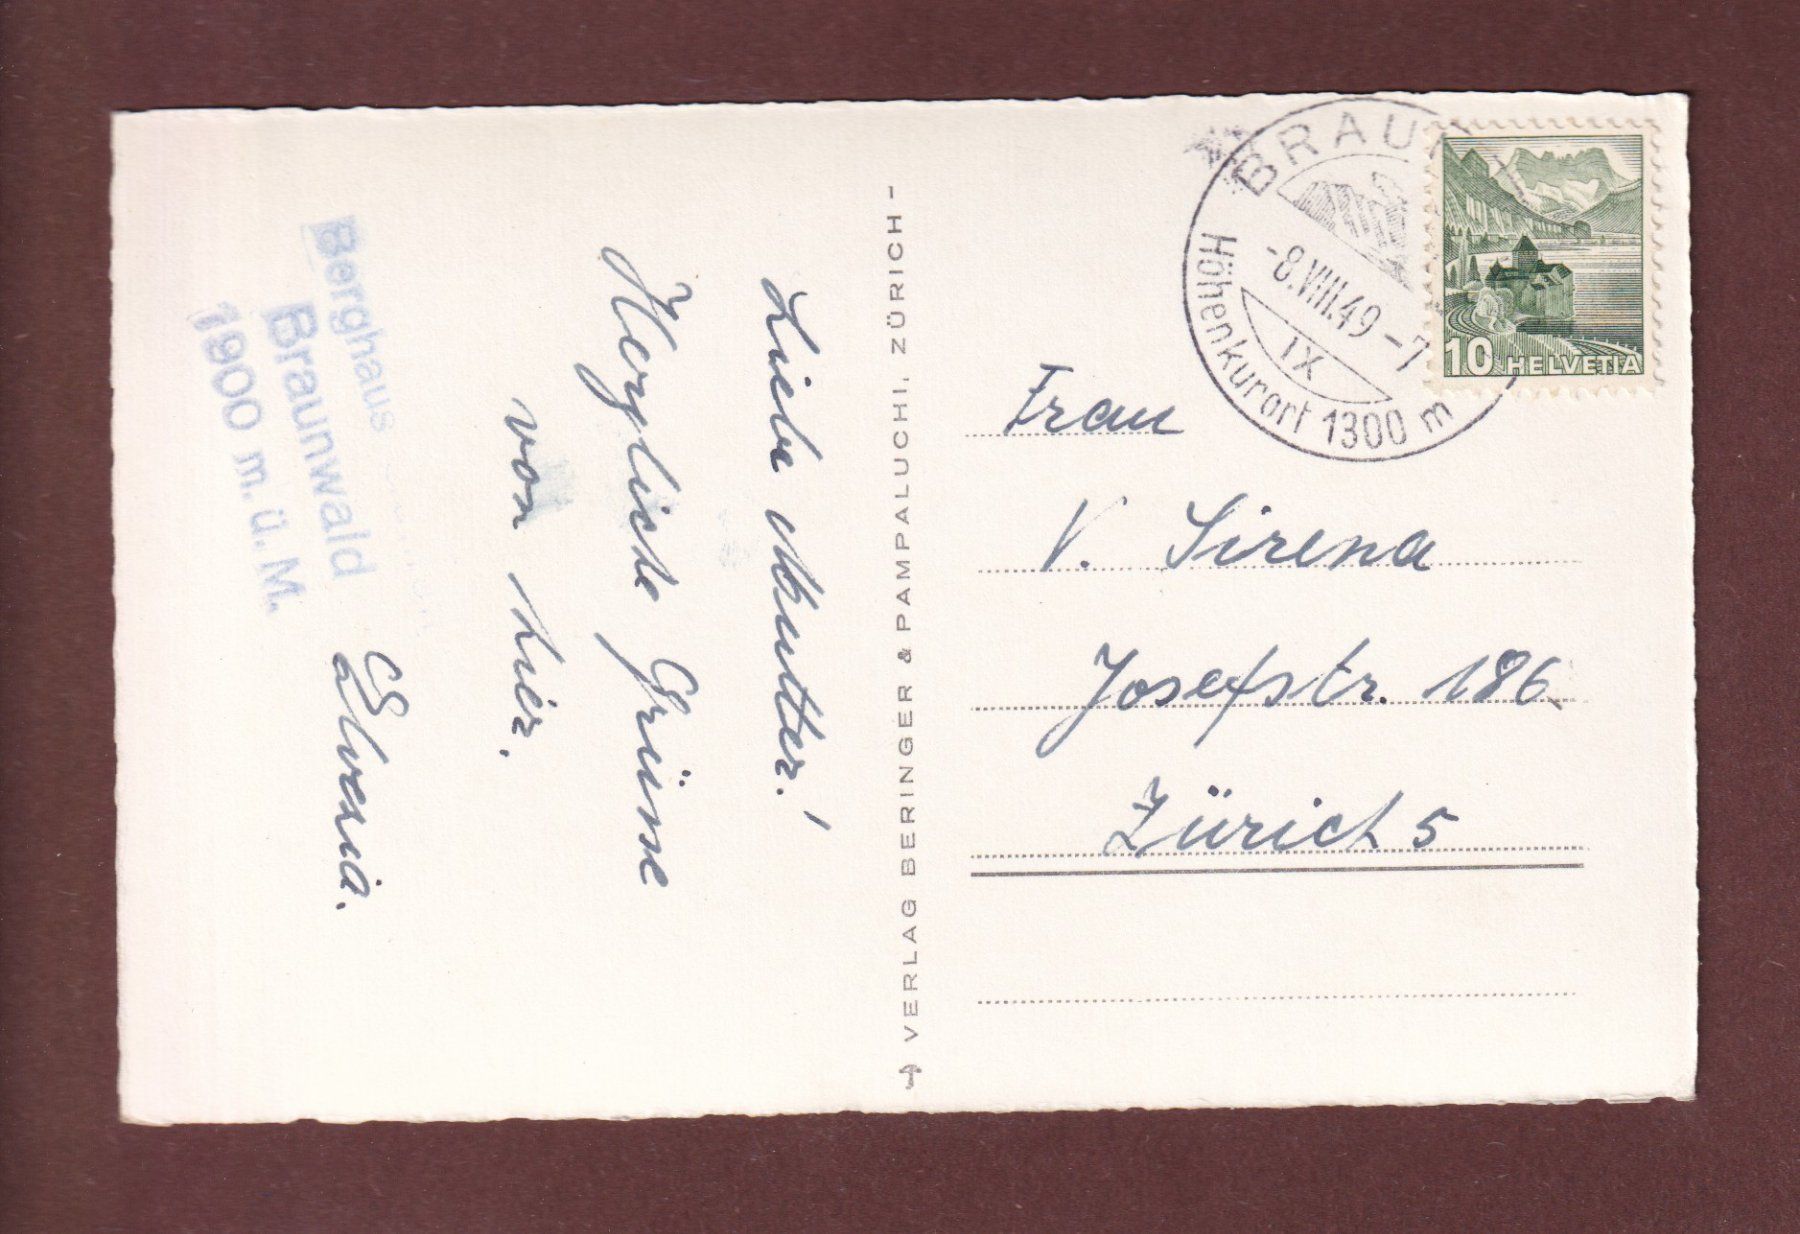 Berghaus
Braunwald
1900 m. ü. M.
Liebe Mutter!
Herzliche Grüsse
von hier.
VERLAG BERINGER & PAMPALUCHI, ZÜRICH -
BRAUN
-8.VIII.49 -7
IX
Höhenkurort 1300 m
10 HELVETIA
Frau
V. Sirena
Josefstr. 186
Zürich 5